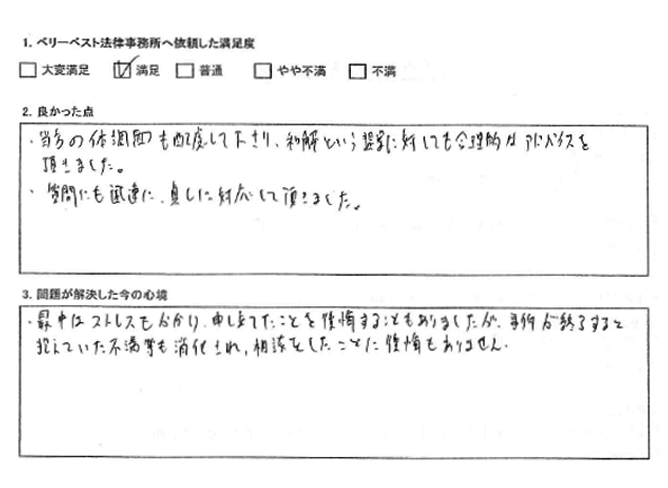 1. ベリーベスト法律事務所へ依頼した満足度
大変満足 満足 普通 やや不満 不満
2. 良かった点
・当方の体調面も配慮して下さり、和解という提案に対しても合理的なアドバイスを
頂きました。
・質問にも迅速に、真しに対応して頂きました。
3. 問題が解決した今の心境
・最中はストレスもかかり、申し立てたことを後悔することもありましたが、事件が終了すると
抱えていた不満等も消化され、相談をしたことに後悔もありません。